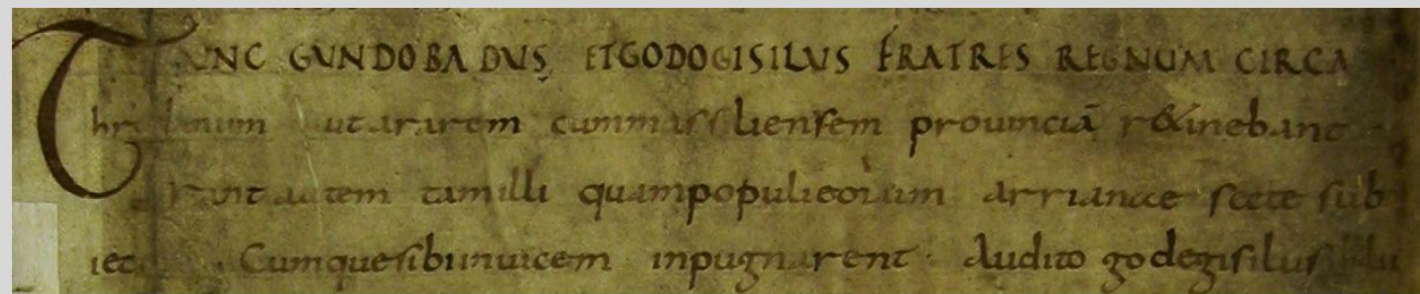 TUNC GUNDOBADUS ETGODOGISILUS FRATRES REGNUM CIRCA
cummassiliensem prouinciā r&inebant
autem tamilli quampopulieorum arrianae secte sub
Cumquesibiinuicem inpugnarent · Audito godegisilus